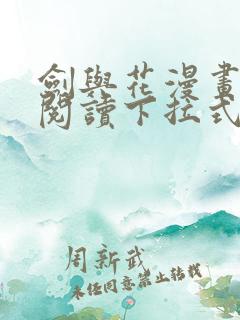 劍與花漫畫
閱讀下拉式
周新武
未经同意禁止转载